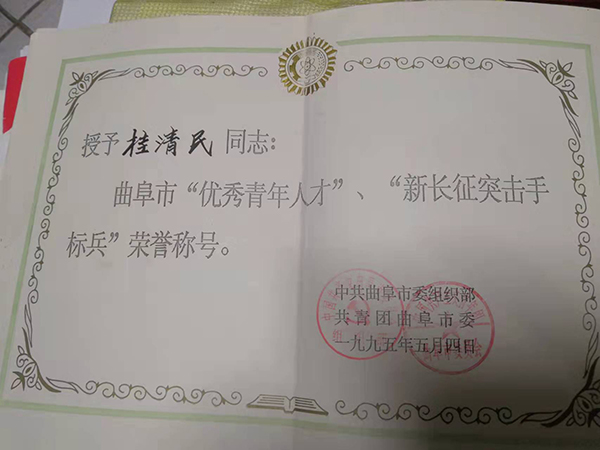 授予桂清民同志：
曲阜市“优秀青年人才”、“新长征突击手
标兵”荣誉称号。
中共曲阜市委组织部
共青团曲阜市委
一九九五年五月四日